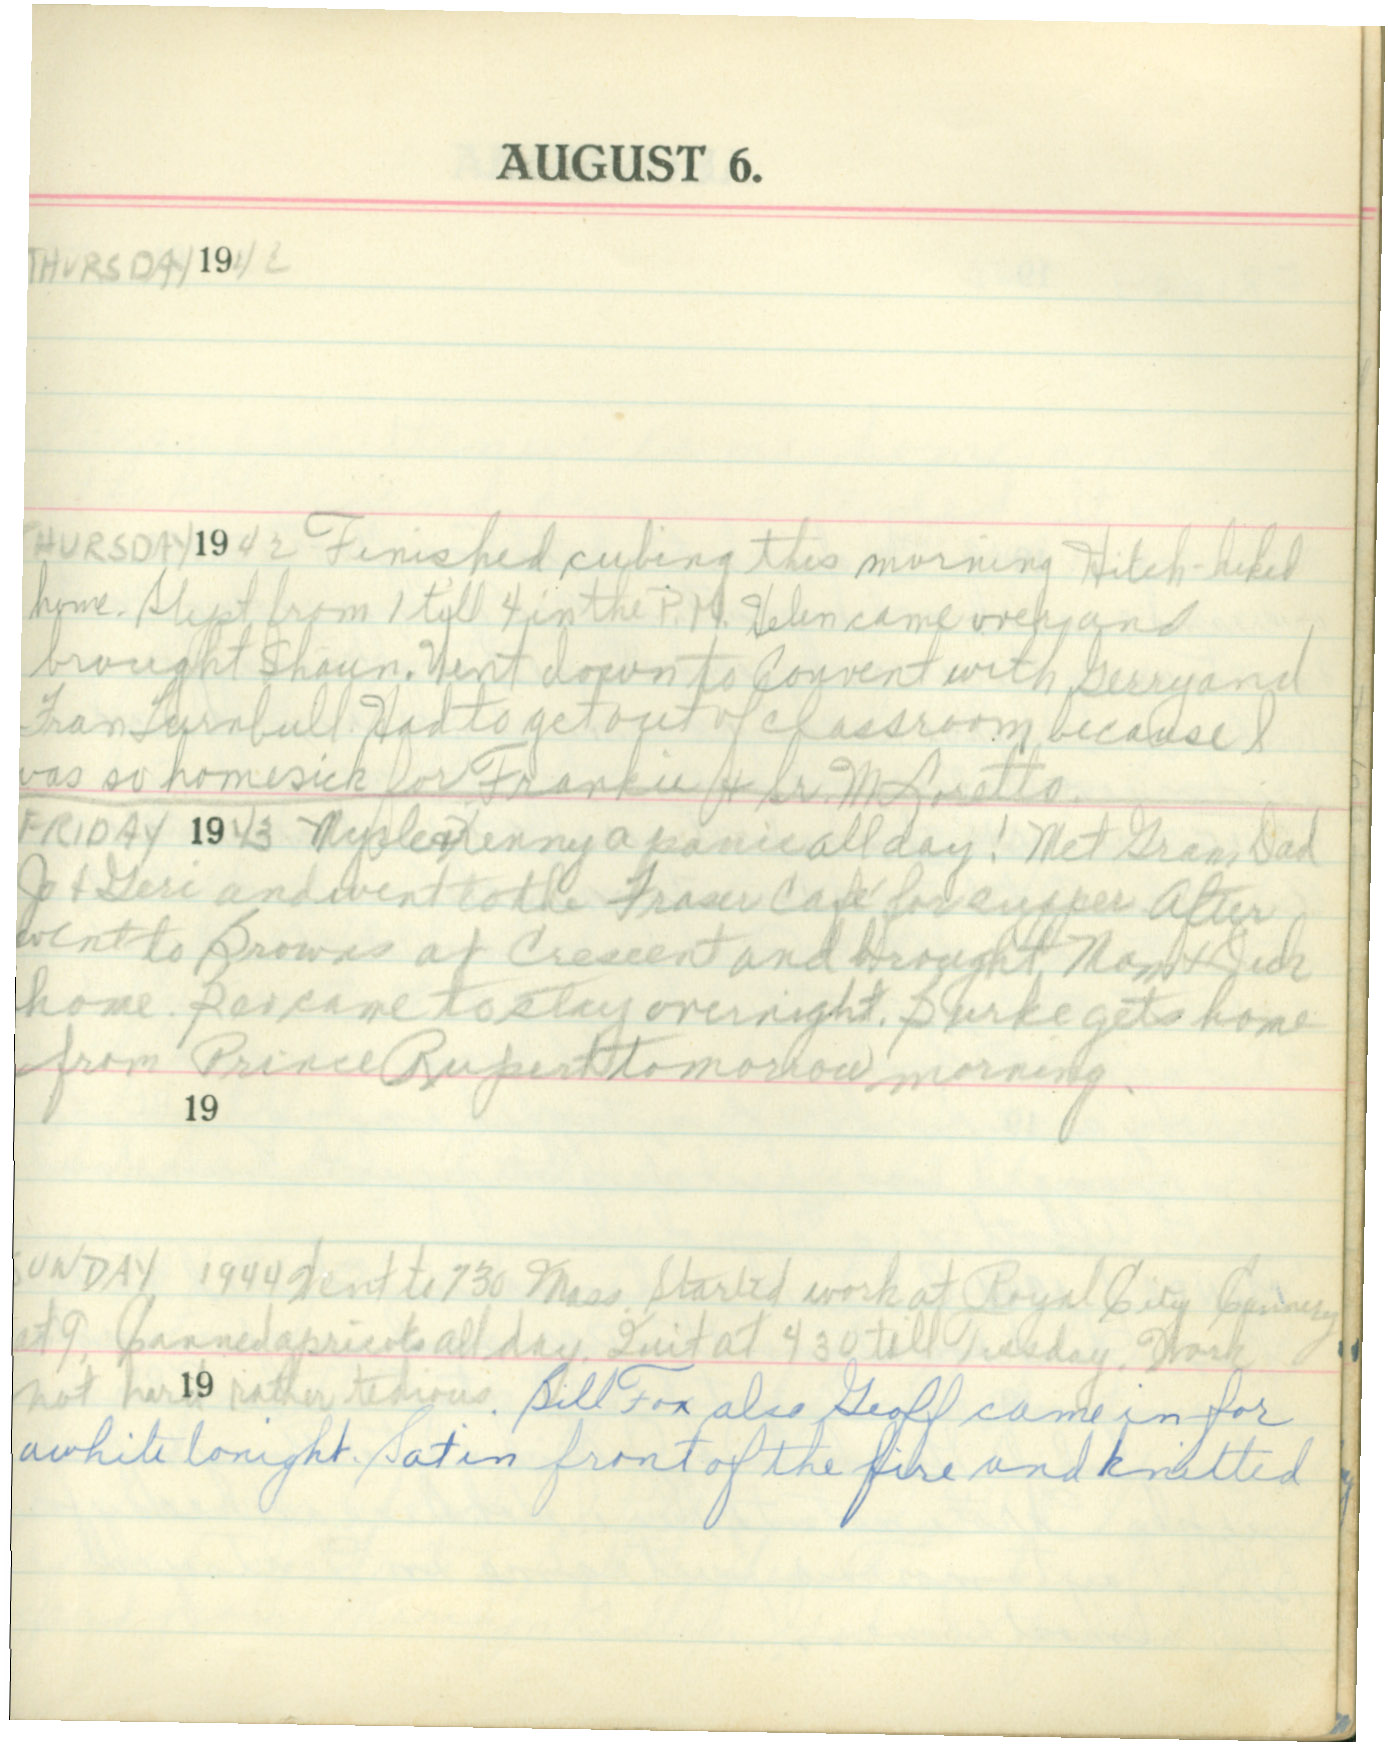 AUGUST 6.
THURSDAY 1942
THURSDAY 1942 Finished cubing this morning Hitch-hiked
home. Slept from 1 till 4 in the P.M. Helen came over and
brought Shaun. Went down to Convent with Gerry and
Fran Turnbull. Had to get out of classroom because I
was so homesick for Frankie & Sr. M Loretto.
FRIDAY 1943 a panic all day! Met Gram, Dad
Jo & Geri and went to the Fraser Café for supper After
went to Browns at Crescent and brought Mom & Dick
home. came to stay overnight. Burke gets home
from Prince Rupert tomorrow morning.
19
SUNDAY 1944 Went to 730 Mass. Started work at Royal City Cannery
at 9. Canned apricots all day. Quit at 430 till Tuesday. Work
not hard 19 rather tedious. Bill Fox also Geoff came in for
awhile tonight. Sat in front of the fire and knitted